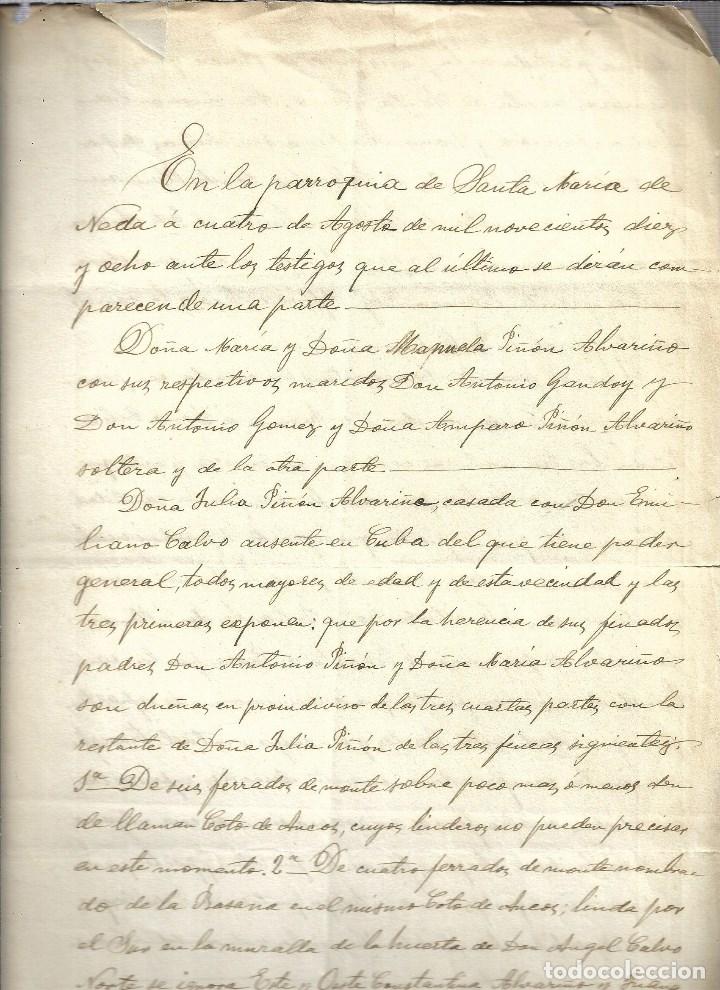 En la parroquia de Santa María de
Neda á cuatro de Agosto de mil novecientos diez
y ocho ante los testigos que al último se dirán com-
parecen de una parte
Doña María y Doña Manuela Piñón Alvariño
con sus respectivos maridos Don Antonio Gandoy y
Don Antonio Gomez y Doña Amparo Piñón Alvariño
soltera y de la otra parte
Doña Julia Piñón Alvariño, casada con Don Emi-
liano Calvo ausente en Cuba del que tiene poder
general, todos mayores de edad y de esta vecindad y las
tres primeras exponen: que por la herencia de sus finados
padres Don Antonio Piñón y Doña María Alvariño
son dueñas en proindiviso de las tres cuartas partes con la
restante de Doña Julia Piñón de las tres fincas siguientes:
1ª De seis ferrados de monte sobre poco mas ó menos don
de llaman Coto de Ancos, cuyos linderos no pueden precisar
en este momento. 2ª De cuatro ferrados de monte nombra-
do de la en el mismo Coto de Ancos; linda por
el Sur en la muralla de la huerta de Don Angel Calvo
Norte se ignora Este y Oeste Constantina Alvariño y
todocoleccion